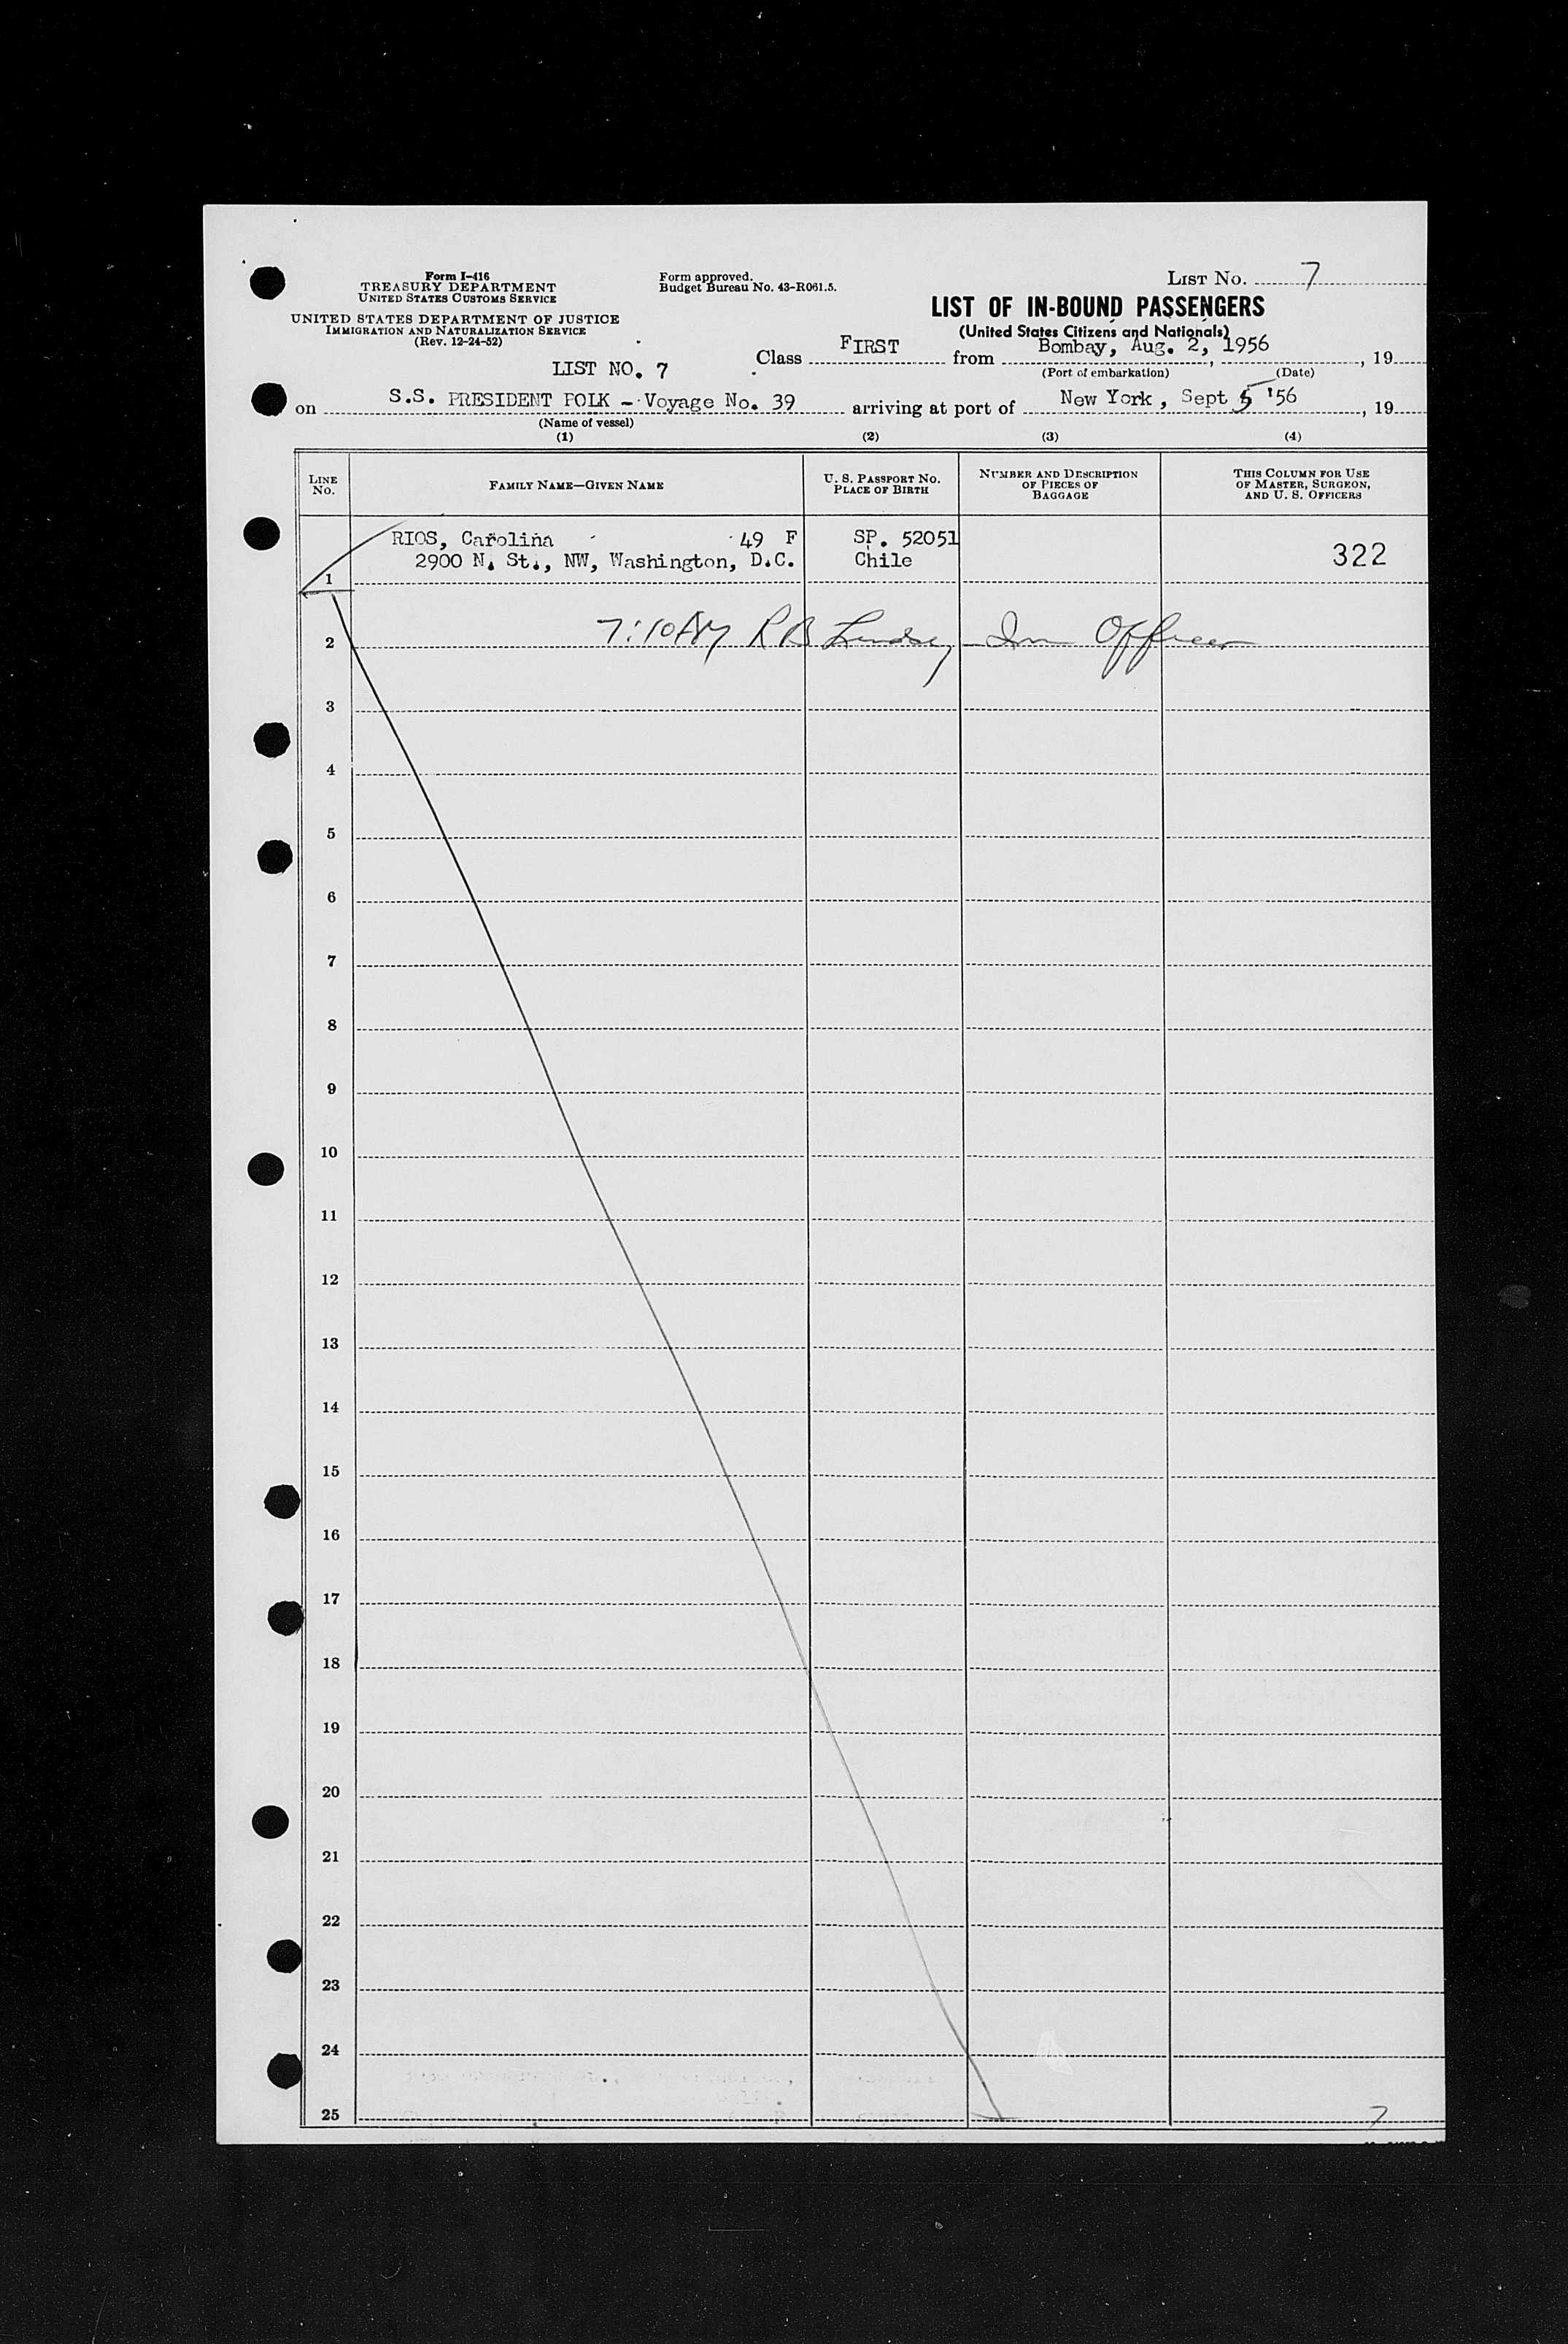 Form I-416
TREASURY DEPARTMENT
UNITED STATES CUSTOMS SERVICE
UNITED STATES DEPARTMENT OF JUSTICE
IMMIGRATION AND NATURALIZATION SERVICE
(Rev. 12-24-52)
Form approved.
Budget Bureau No. 43-R061.5.
LIST No. 7
LIST OF IN-BOUND PASSENGERS
(United States Citizens and Nationals)
LIST NO. 7
Class FIRST from Bombay, Aug. 2, 1956, 19
(Port of embarkation) (Date)
on S.S. PRESIDENT POLK - Voyage No. 39 arriving at port of New York, Sept 5 '56, 19
(Name of vessel)
(1) (2) (3) (4)
LINE No. FAMILY NAME—GIVEN NAME U. S. PASSPORT No. PLACE OF BIRTH NUMBER AND DESCRIPTION OF PIECES OF BAGGAGE THIS COLUMN FOR USE OF MASTER, SURGEON, AND U. S. OFFICERS
RIOS, Carolina 49 F SP. 52051
2900 N. St., NW, Washington, D.C. Chile 322
1
2 7:10AM R B Lindsey Im Officer
3
4
5
6
7
8
9
10
11
12
13
14
15
16
17
18
19
20
21
22
23
24
25 7